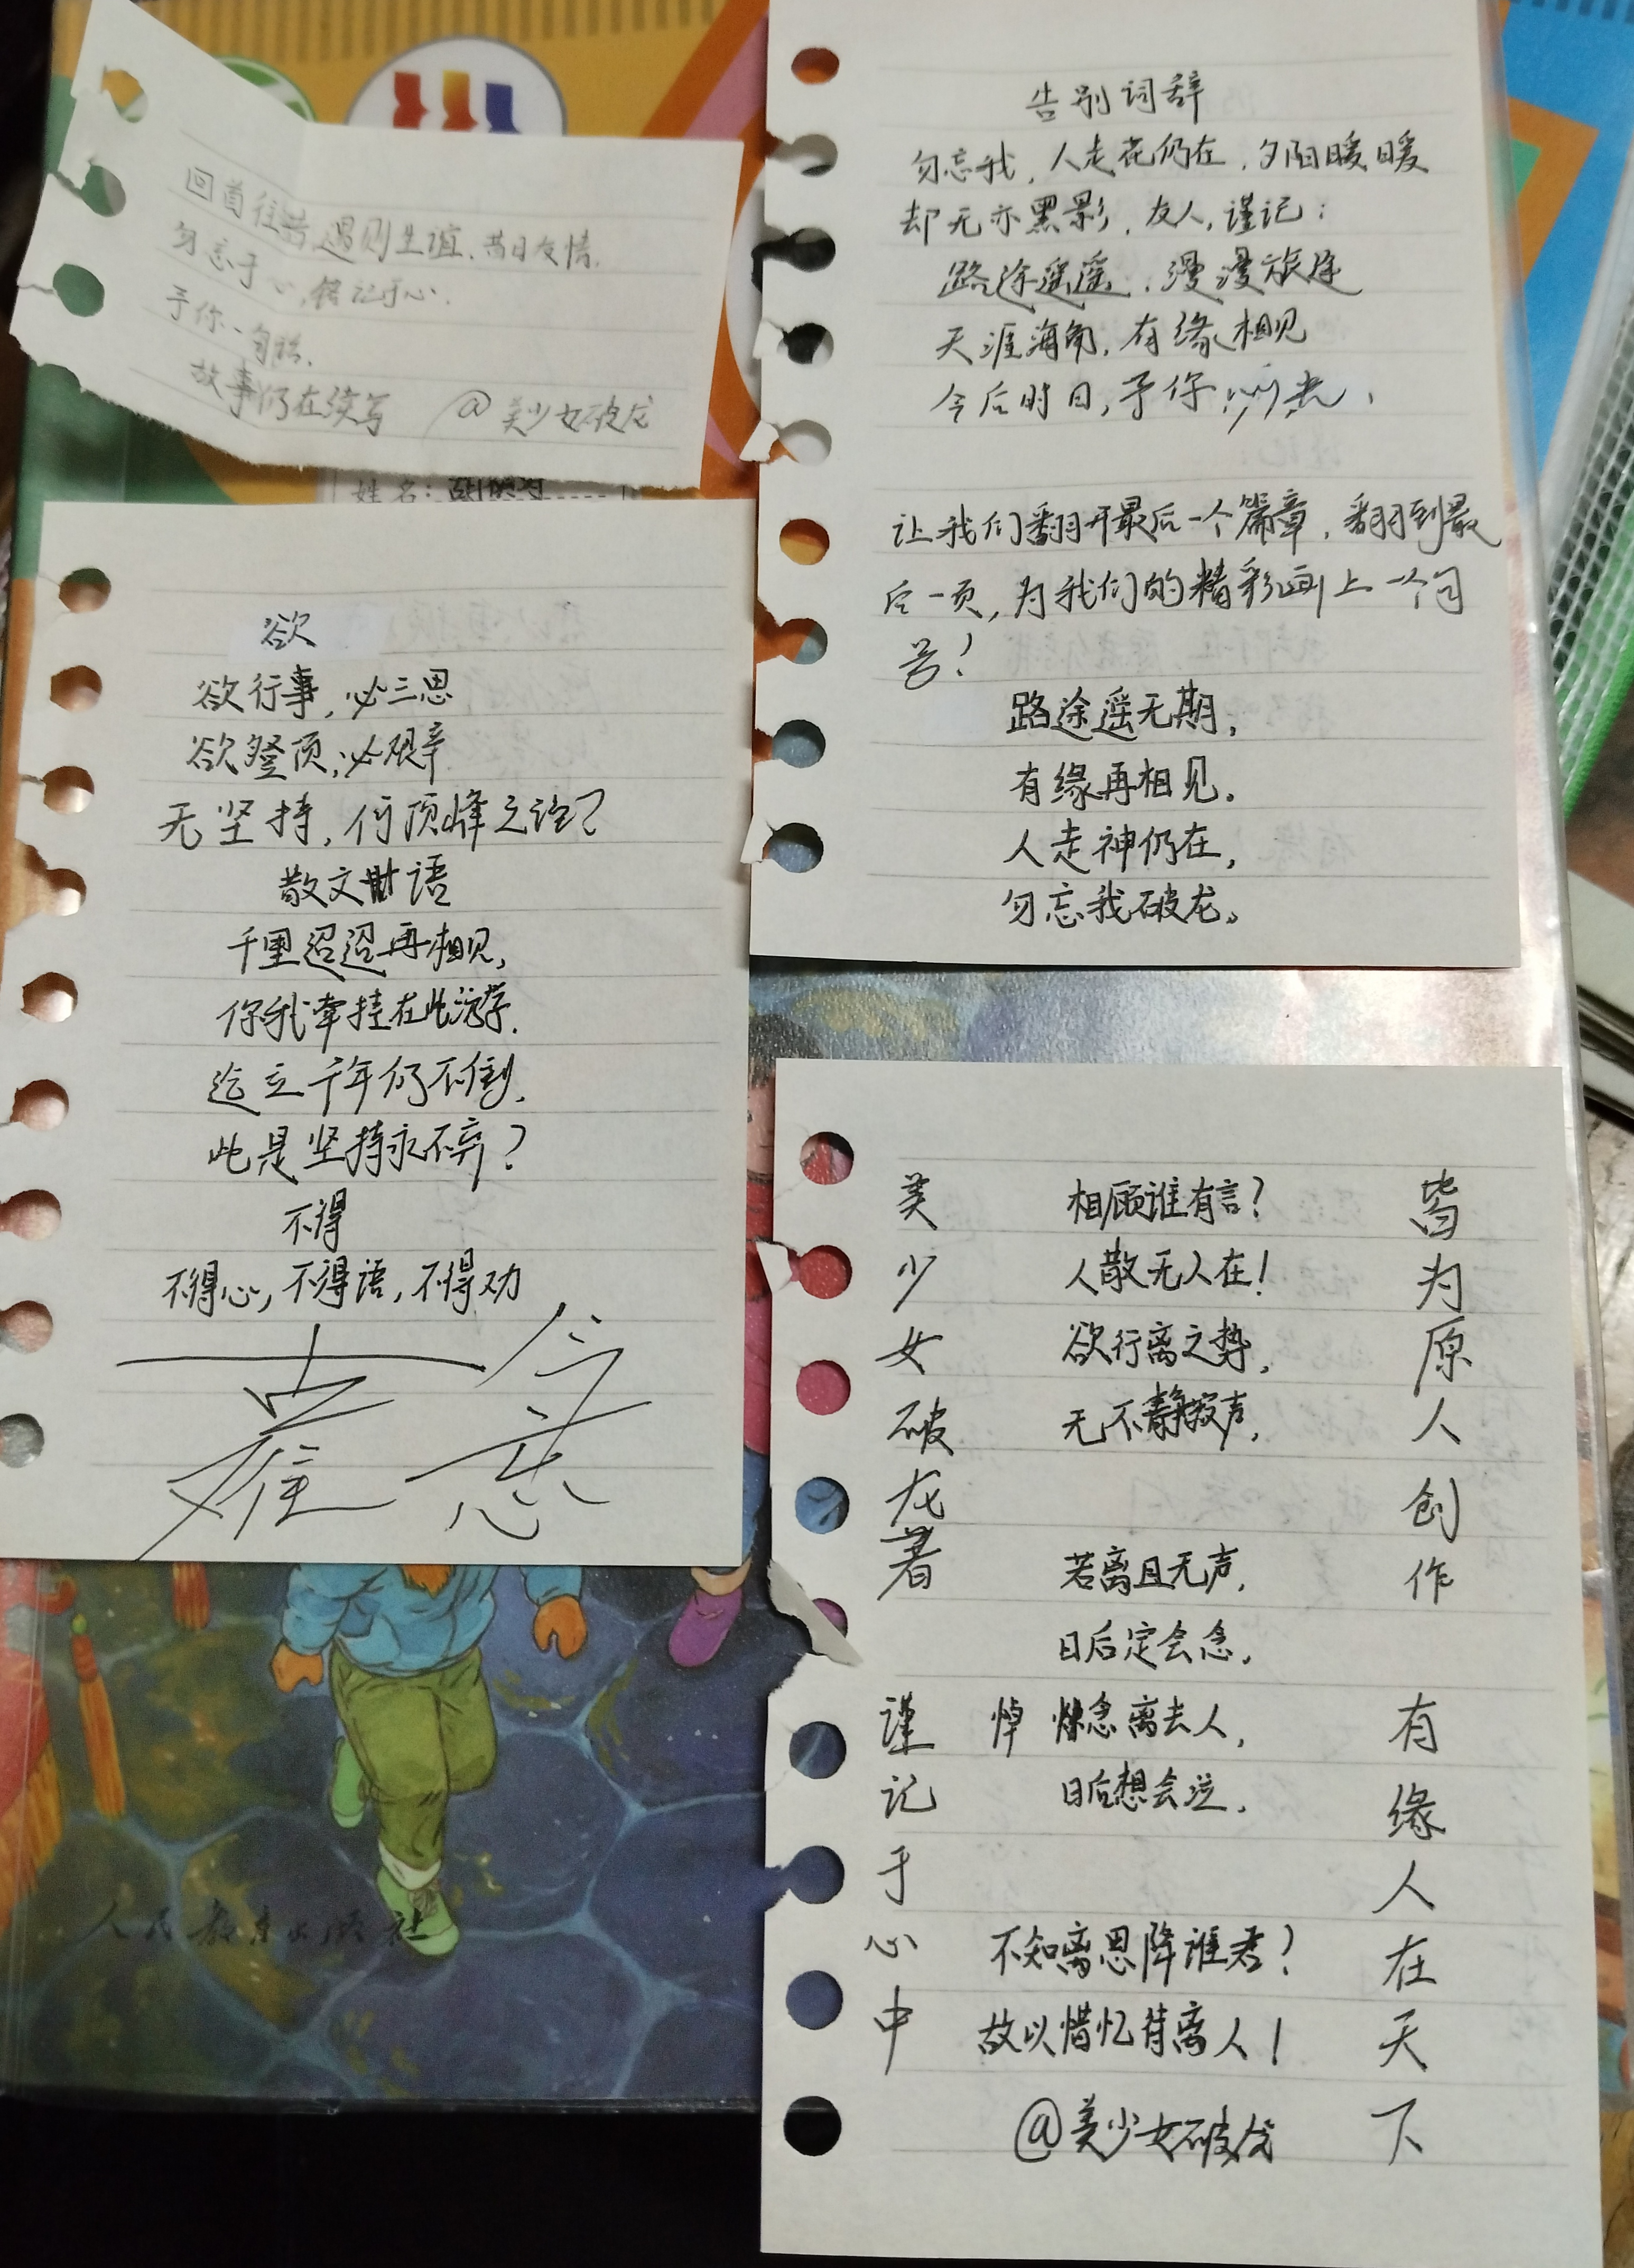 回首往昔遇则生谊,昔日友情,
勿忘于心,铭记于心.
予你一句话,
故事仍在续写 @美少女破龙
姓名:
欲
欲行事,必三思
欲登顶,必艰辛
无坚持,何顶峰之说?
散文 语
千里迢迢再相见,
你我牵挂在此游学.
迄立千年仍不倒,
此是坚持永不弃?
不得
不得心,不得语,不得劝
难 意
人民教育出版社
告别词辞
勿忘我,人走花仍在,夕阳暖暖
却无亦黑影,友人,谨记:
路途遥遥,漫漫旅途
天涯海角,有缘相见
今后时日,予你 光,
让我们翻开最后一个篇章,翻到最
后一页,为我们的精彩画上一个句
号!
路途遥无期,
有缘再相见。
人走神仍在,
勿忘我破龙。
美少女破龙著
谨记于心中
相顾谁有言?
人散无人在!
欲行离之势,
无不静寂声,
若离且无声,
日后定会念,
悼 念离去人,
日后想会泣,
不知离思降谁君?
故以惜忆待离人!
@美少女破龙
皆为原人创作
有缘人在天下